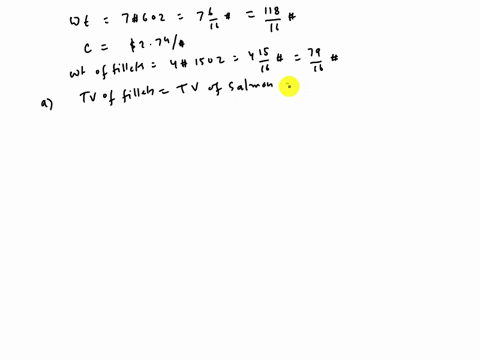 Wt = 7# 6 oz = 7 6/16 # = 118/16 #
C = $2.74/#
wt of fillets = 4# 15 oz = 4 15/16 # = 79/16 #
a) TV of fillets = TV of Salmon =